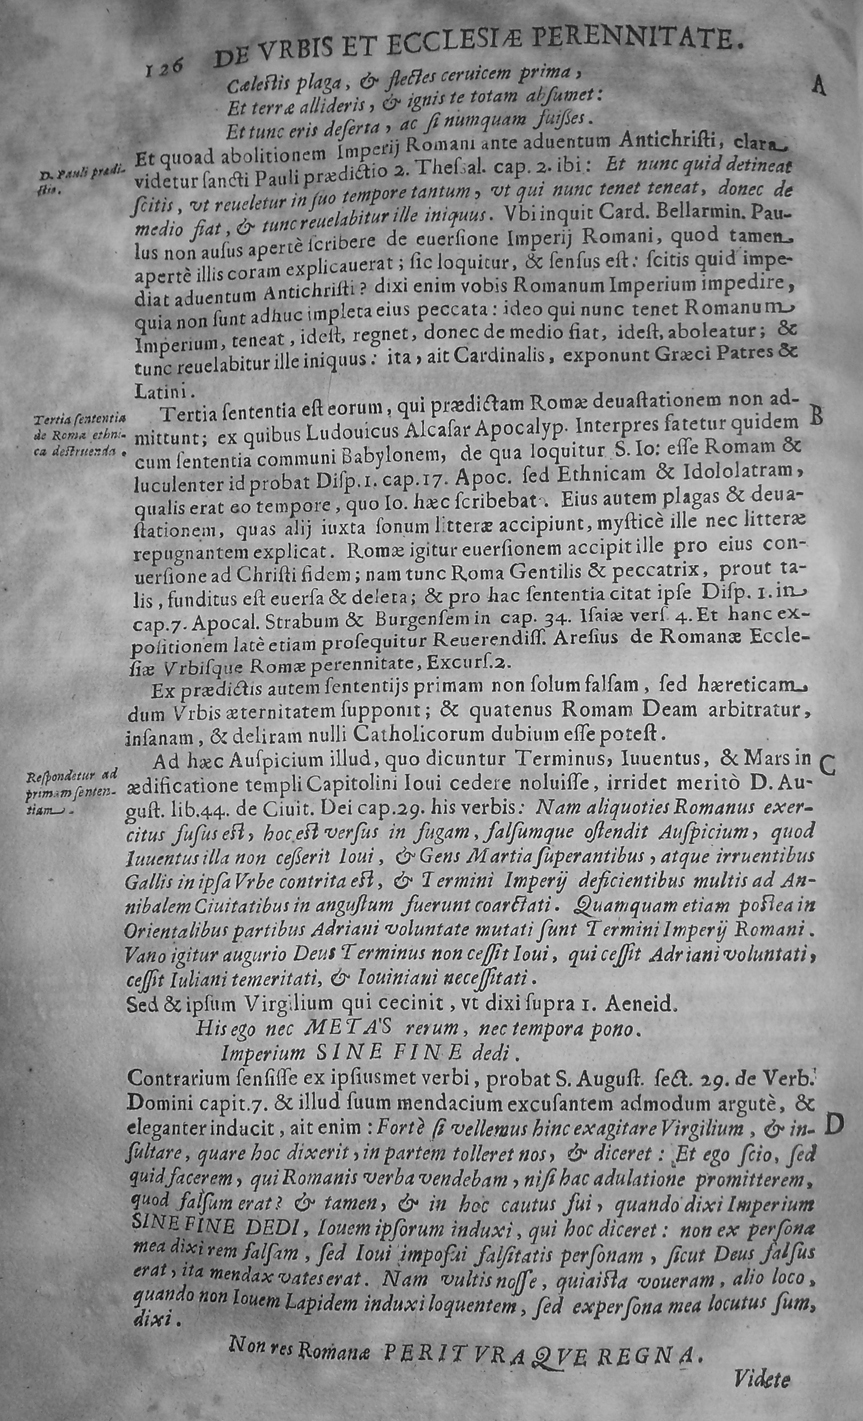 126 DE VRBIS ET ECCLESIÆ PERENNITATE.
Cæleſtis plaga, & flectes ceruicem prima,
A
Et terræ allideris, & ignis te totam abſumet:
Et tunc eris deſerta, ac ſi numquam fuiſſes.
Et quoad abolitionem Imperij Romani ante aduentum Antichriſti, clara
D. Pauli prædi-
ctio.
videtur ſancti Pauli prædictio 2. Theſsal. cap. 2. ibi: Et nunc quid detineat
ſcitis, vt reueletur in ſuo tempore tantum, vt qui nunc tenet teneat, donec de
medio fiat, & tunc reuelabitur ille iniquus. Vbi inquit Card. Bellarmin. Pau-
lus non auſus apertè ſcribere de euerſione Imperij Romani, quod tamen
apertè illis coram explicauerat; ſic loquitur, & ſenſus eſt: ſcitis quid impe-
diat aduentum Antichriſti? dixi enim vobis Romanum Imperium impedire,
quia non ſunt adhuc impleta eius peccata: ideo qui nunc tenet Romanum
Imperium, teneat, ideſt, regnet, donec de medio fiat, ideſt, aboleatur; &
tunc reuelabitur ille iniquus: ita, ait Cardinalis, exponunt Græci Patres &
Latini.
Tertia ſententia
de Roma ethni-
ca deſtruenda.
Tertia ſententia eſt eorum, qui prædictam Romæ deuaſtationem non ad-
B
mittunt; ex quibus Ludouicus Alcaſar Apocalyp. Interpres fatetur quidem
cum ſententia communi Babylonem, de qua loquitur S. Io: eſſe Romam &
luculenter id probat Diſp. 1. cap. 17. Apoc. ſed Ethnicam & Idololatram,
qualis erat eo tempore, quo Io. hæc ſcribebat. Eius autem plagas & deua-
ſtationem, quas alij iuxta ſonum litteræ accipiunt, myſticè ille nec litteræ
repugnantem explicat. Romæ igitur euerſionem accipit ille pro eius con-
uerſione ad Chriſti fidem; nam tunc Roma Gentilis & peccatrix, prout ta-
lis, funditus eſt euerſa & deleta; & pro hac ſententia citat ipſe Diſp. 1. in
cap. 7. Apocal. Strabum & Burgenſem in cap. 34. Iſaiæ verſ 4. Et hanc ex-
poſitionem latè etiam proſequitur Reuerendiſſ. Areſius de Romanæ Eccle-
ſiæ Vrbiſque Romæ perennitate, Excurſ. 2.
Ex prædictis autem ſententijs primam non ſolum falſam, ſed hæreticam
dum Vrbis æternitatem ſupponit; & quatenus Romam Deam arbitratur,
inſanam, & deliram nulli Catholicorum dubium eſſe poteſt.
Reſpondetur ad
primam ſenten-
tiam.
Ad hæc Auſpicium illud, quo dicuntur Terminus, Iuuentus, & Mars in
C
ædificatione templi Capitolini Ioui cedere noluiſſe, irridet meritò D. Au-
guſt. lib. 44. de Ciuit. Dei cap. 29. his verbis: Nam aliquoties Romanus exer-
citus fuſus eſt, hoc eſt verſus in fugam, falſumque oſtendit Auſpicium, quod
Iuuentus illa non ceſſerit Ioui, & Gens Martia ſuperantibus, atque irruentibus
Gallis in ipſa Vrbe contrita eſt, & Termini Imperij deficientibus multis ad An-
nibalem Ciuitatibus in anguſtum fuerunt coarctati. Quamquam etiam poſtea in
Orientalibus partibus Adriani voluntate mutati ſunt Termini Imperij Romani.
Vano igitur augurio Deus Terminus non ceſſit Ioui, qui ceſſit Adriani voluntati,
ceſſit Iuliani temeritati, & Iouiniani neceſſitati.
Sed & ipſum Virgilium qui cecinit, vt dixi ſupra 1. Aeneid.
His ego nec METAS rerum, nec tempora pono.
Imperium SINE FINE dedi.
Contrarium ſenſiſſe ex ipſiusmet verbi, probat S. Auguſt. ſect. 29. de Verb.
Domini capit. 7. & illud ſuum mendacium excuſantem admodum argutè, &
eleganter inducit, ait enim: Fortè ſi vellemus hinc exagitare Virgilium, & in-
D
ſultare, quare hoc dixerit, in partem tolleret nos, & diceret: Et ego ſcio, ſed
quid facerem, qui Romanis verba vendebam, niſi hac adulatione promitterem,
quod falſum erat? & tamen, & in hoc cautus fui, quando dixi Imperium
SINE FINE DEDI, Iouem ipſorum induxi, qui hoc diceret: non ex perſona
mea dixi rem falſam, ſed Ioui impoſui falſitatis perſonam, ſicut Deus falſus
erat, ita mendax vates erat. Nam vultis noſſe, quia iſta voueram, alio loco,
quando non Iouem Lapidem induxi loquentem, ſed ex perſona mea locutus ſum,
dixi.
Non res Romanæ PERITVRAQVE REGNA.
Videte